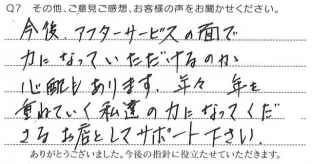 Q7 その他、ご意見ご感想、お客様の声をお聞かせください。
今後、アフターサービスの面で
力になっていただけるのか
心配もあります。年々 年を
重ねていく私達の力になってくだ
さるお店としてサポート下さい。
ありがとうございました。今後の指針に役立たせていただきます。